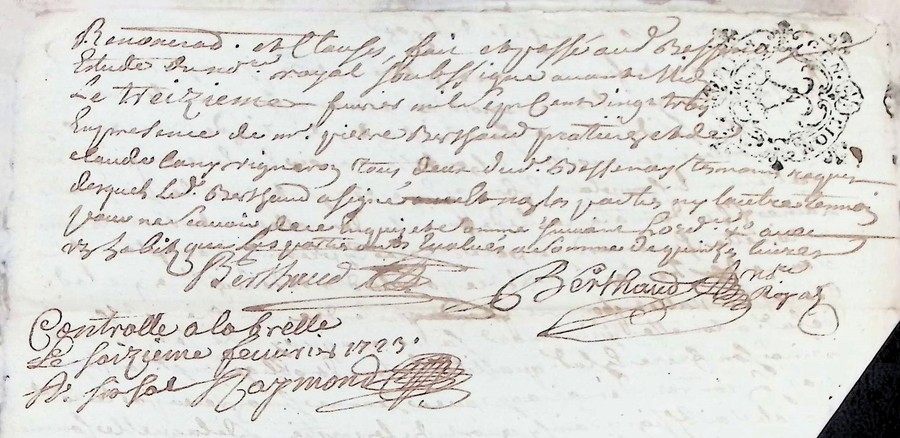 Renonciaõ. et Clauses, fait et passé aud. Bessenay
Estude du no.re royal soubsigné avant Midy
Le treizieme fevrier mil sept Cent vingt trois
En presence de m.r pierre Berthaud praticien et de
claude vigneron tous deux dud. Bessenay tesmoins requis
desquels Led. Berthaud a signé non les parties ny l'autre temoin
pour ne scavoir de ce enquis et sommé suivant L'ord.ce
que les parties ont Evalués a la somme de quinze livres
Berthaud
Berthaud no.re Royal
Controllé a la brelle
Le saizieme feuvrier 1723.
Raymond